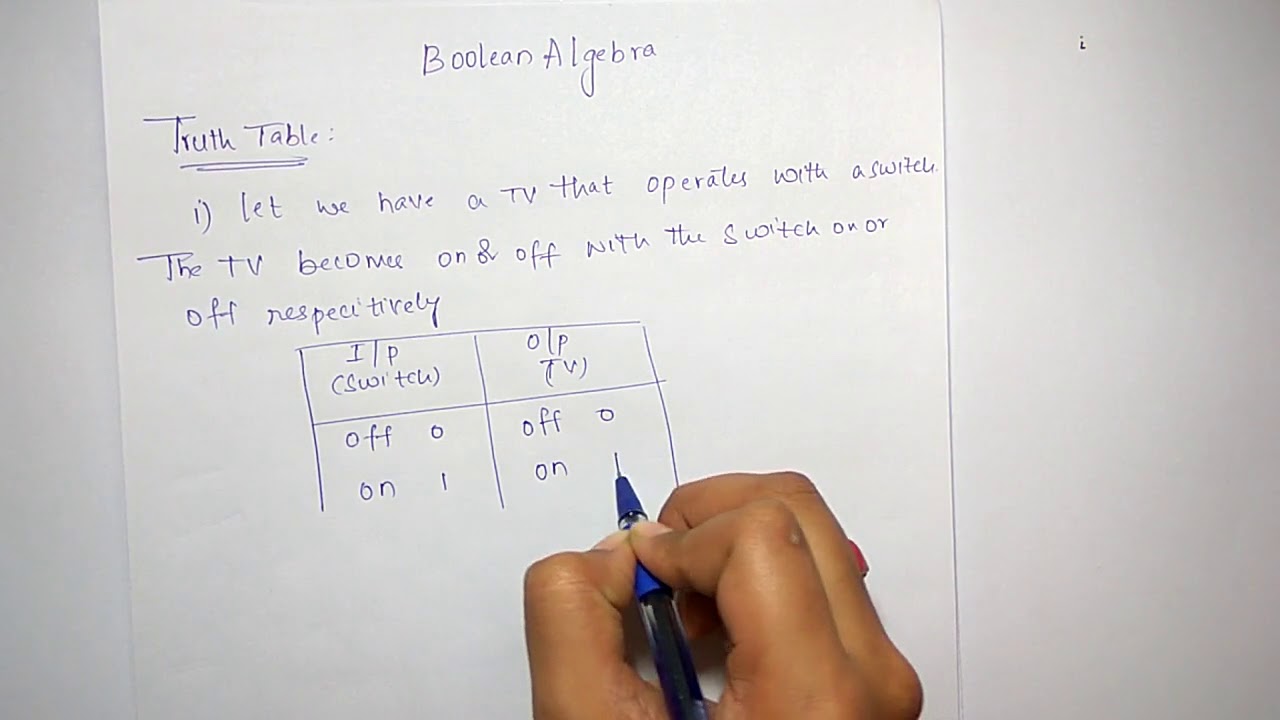 Boolean Algebra
Truth Table:
i) let we have a TV that operates with a switch.
The TV becomes on & off with the switch on or
off respecitively
I/P O/P
(Switch) (TV)
off 0 off 0
on 1 on 1
i